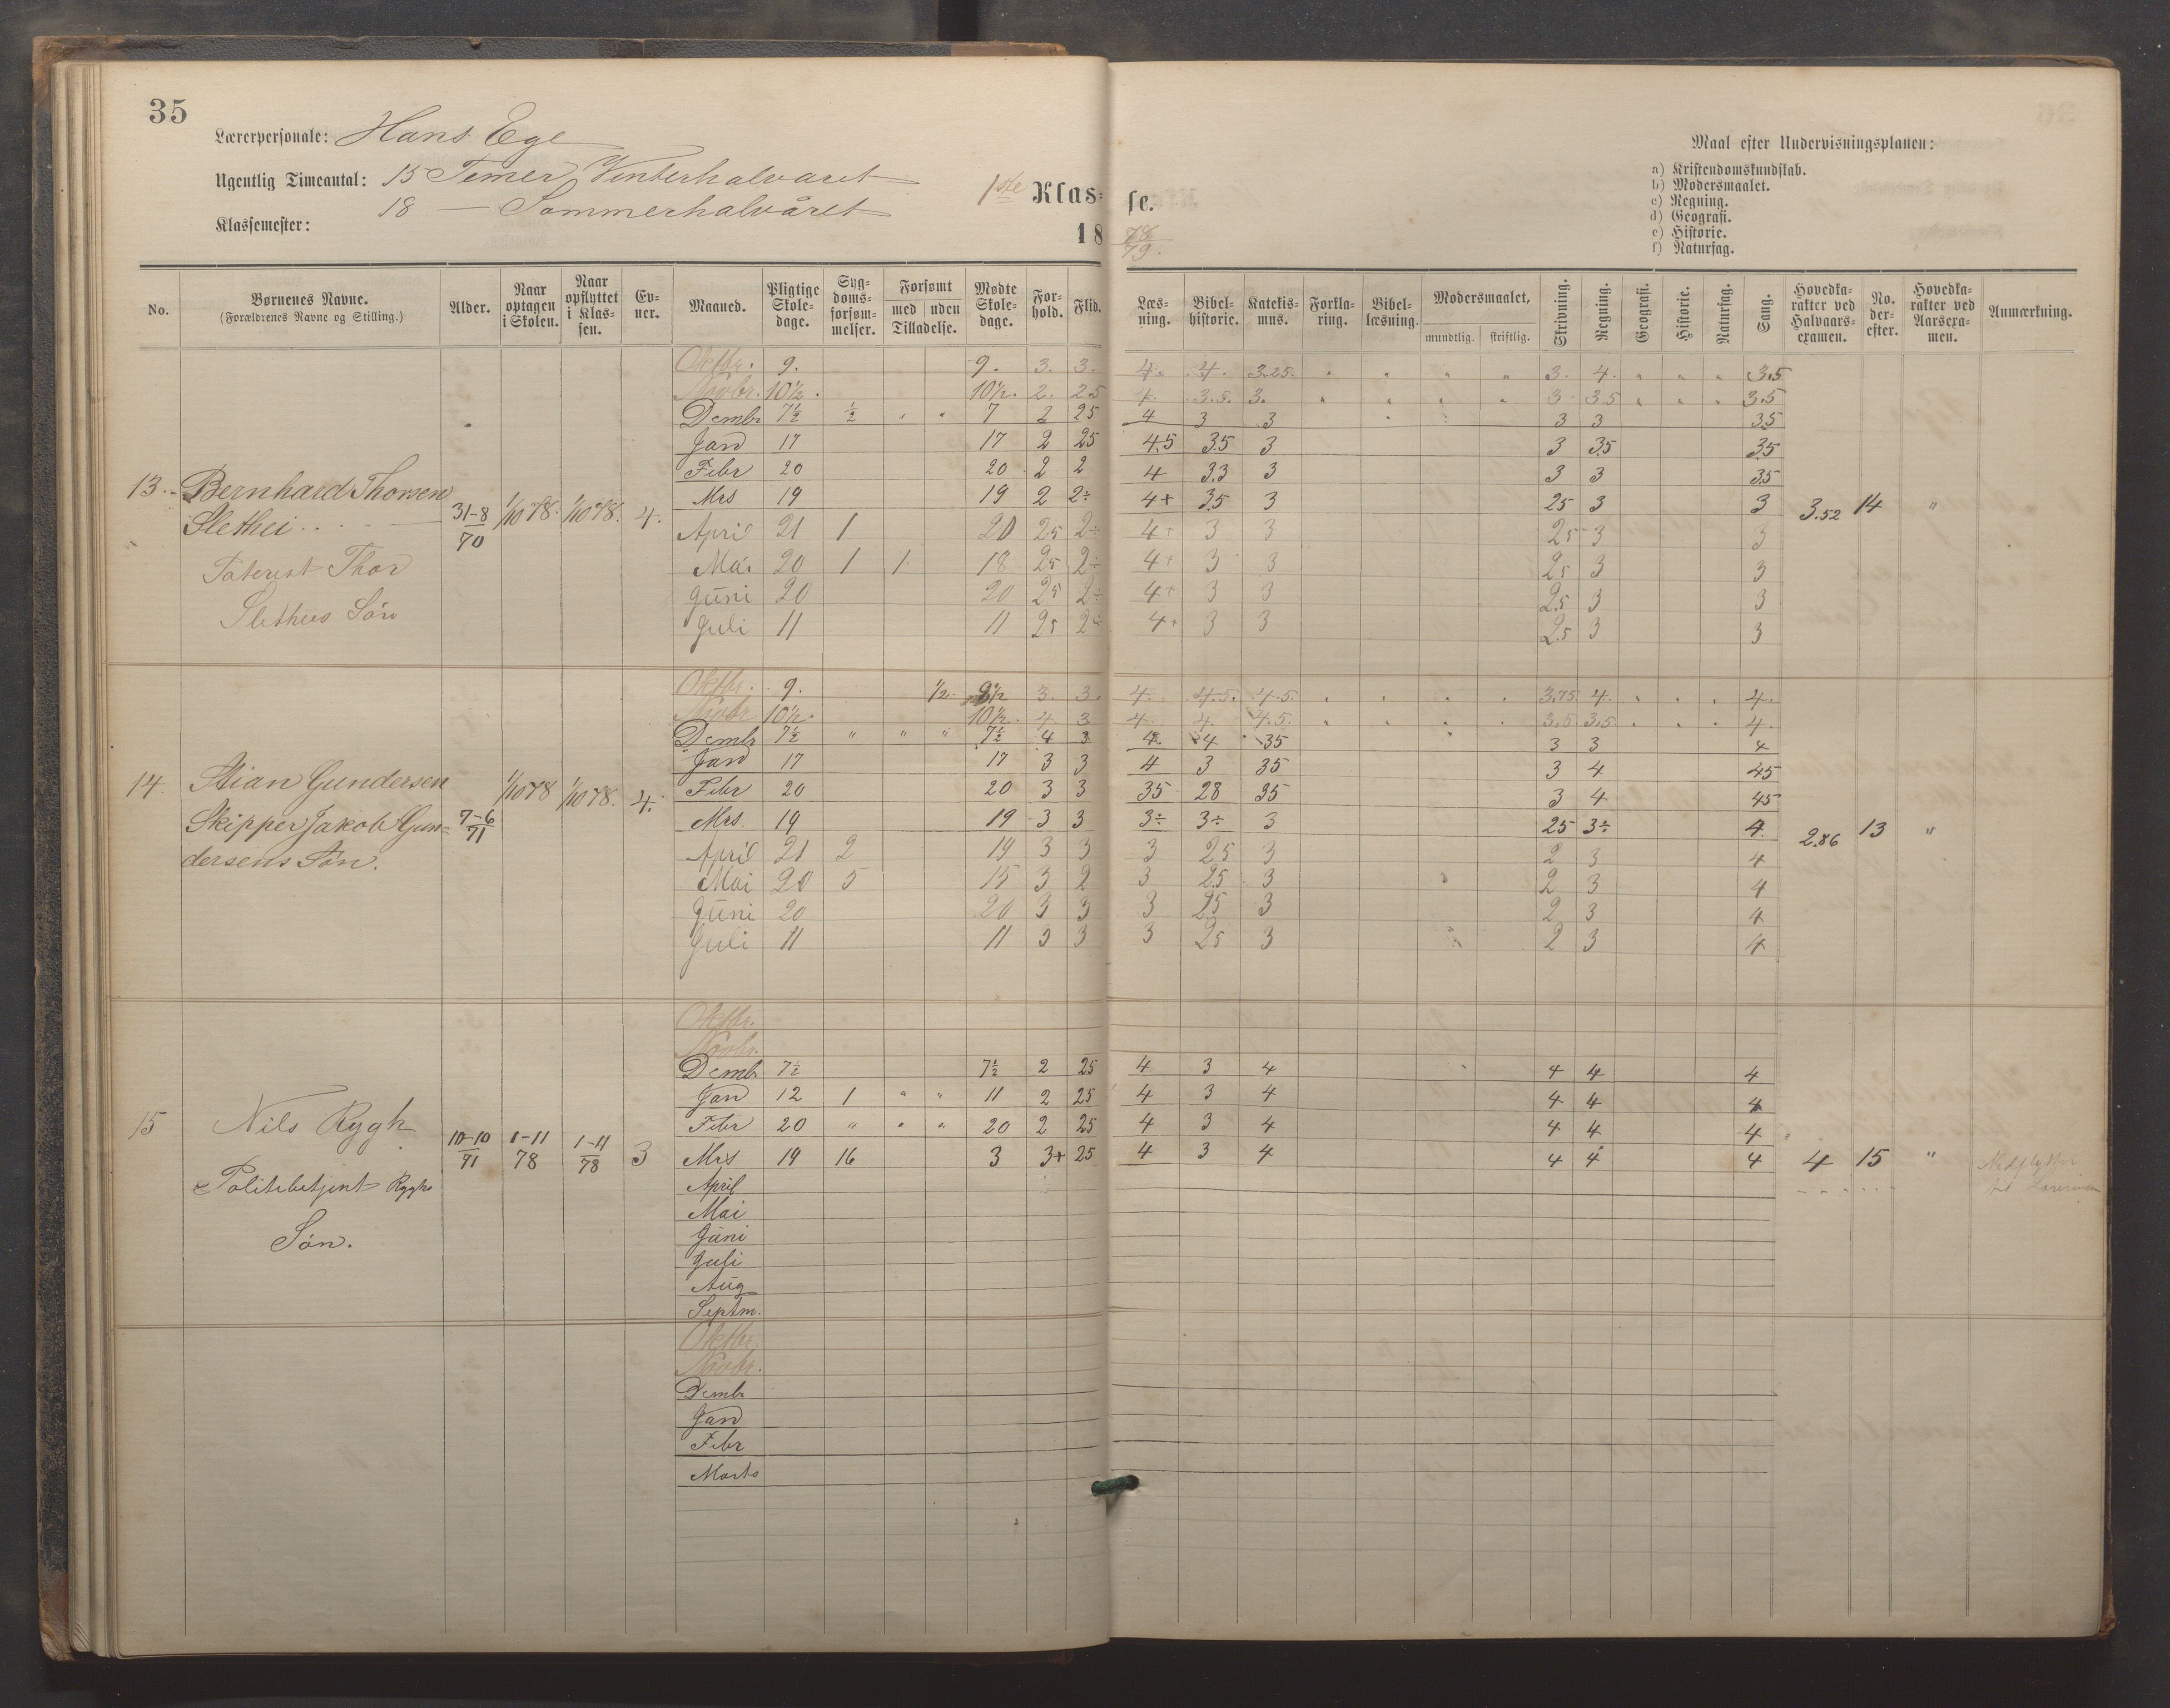 35
Lærerpersonale: Hans Ege
Ugentlig Timeantal: 15 Timer Vinterhalvaret
18 — Sommerhalvåret
Klassemester:
1ste Klas= se.
18 78/79.
Maal efter Undervisningsplanen:
a) Kristendomskundskab.
b) Modersmaalet.
c) Regning.
d) Geografi.
e) Historie.
f) Naturfag.
No. | Børnenes Navne. (Forældrenes Navne og Stilling.) | Alder. | Naar optagen i Skolen. | Naar opflyttet i Klas= sen. | Ev= ner. | Maaned. | Pligtige Skole= dage. | Syg= doms= forsøm= melser. | Forsømt med uden Tilladelse. | Mødte Skole= dage. | For= hold. | Flid. | Læs= ning. | Bibel= historie. | Katekis= mus. | Forkla= ring. | Bibel= læsning. | Modersmaalet, mundtlig. skriftlig. | Skrivning. | Regning. | Geografi. | Historie. | Naturfag. | Sang. | Hovedka= rakter ved Halvaars= examen. | No. der= efter. | Hovedka= rakter ved Aarsexa= men. | Anmærkning.
Oktbr. 9. 9. 3. 3. 4. 4. 3.25. " " " " 3. 4. " " " 3.5
Novbr. 10½. 10½. 2. 25 4. 3.5. 3. " " " " 3 3.5 " " " 3.5
Dcmbr 7½ ½ " " 7 2 25 4 3 3 3 3 35
Jan 17 17 2 25 4.5 3.5 3 3 3.5 3.5
Febr 20 20 2 2 4 3.3 3 3 3 35
13. Bernhard Thorsen
Slethei
31-8/70 1/10 78. 1/10 78. 4.
Mrs 19 19 2 2÷ 4+ 3.5 3 25 3 3 3.52 14 "
April 21 1 20 25 2÷ 4+ 3 3 25 3 3
Thor
Mai 20 1 1 18 25 2÷ 4+ 3 3 25 3 3
Juni 20 20 25 2÷ 4+ 3 3 2.5 3 3
Sletheis Sön
Juli 11 11 25 2÷ 4+ 3 3 2.5 3 3
Oktbr. 9. ½. 8½ 3. 3. 4. 4.5. 4.5. " " " " 3.75 4. " " " 4.
Novbr 10½. 10½. 4. 3 4. 4. 4.5. " " " " 3.5 3.5. " " " 4.
Dcmbr 7½ " " " 7½ 4 3 4. 4 35 3 3 4
Jan 17 17 3 3 4 3 35 3 4 45
14. Stian Gundersen
1/10 78 1/10 78. 4.
Febr 20 20 3 3 35 28 35 3 4 45
Skipper Jakob Gun=
7-6/71
Mrs. 19 19 3 3 3÷ 3÷ 3 25 3÷ 4. 2.86 13 "
dersens Sön.
April 21 2 19 3 3 3 25 3 2 3 4
Mai 20 5 15 3 2 3 25 3 2 3 4
Juni 20 20 3 3 3 25 3 2 3 4
Juli 11 11 3 3 3 25 3 2 3 4
Oktbr.
Novbr.
Dcmbr 7½ 7½ 2 25 4 3 4 4 4 4
Jan 12 1 " " 11 2 25 4 3 4 4 4 4
15 Nils Rygh
Febr 20 " " " 20 2 25 4 3 4 4 4 4
10-10/71 1-11/78 1-11/78 3
Mrs 19 16 3 3+ 25 4 3 4 4 4 4 4 15 " Nedflyttet
Politibetjent Ryghs
April
til
Mai
Sön.
Juni
Juli
Aug
Septm.
Oktbr.
Novbr.
Dcmbr
Jan
Febr
Marts